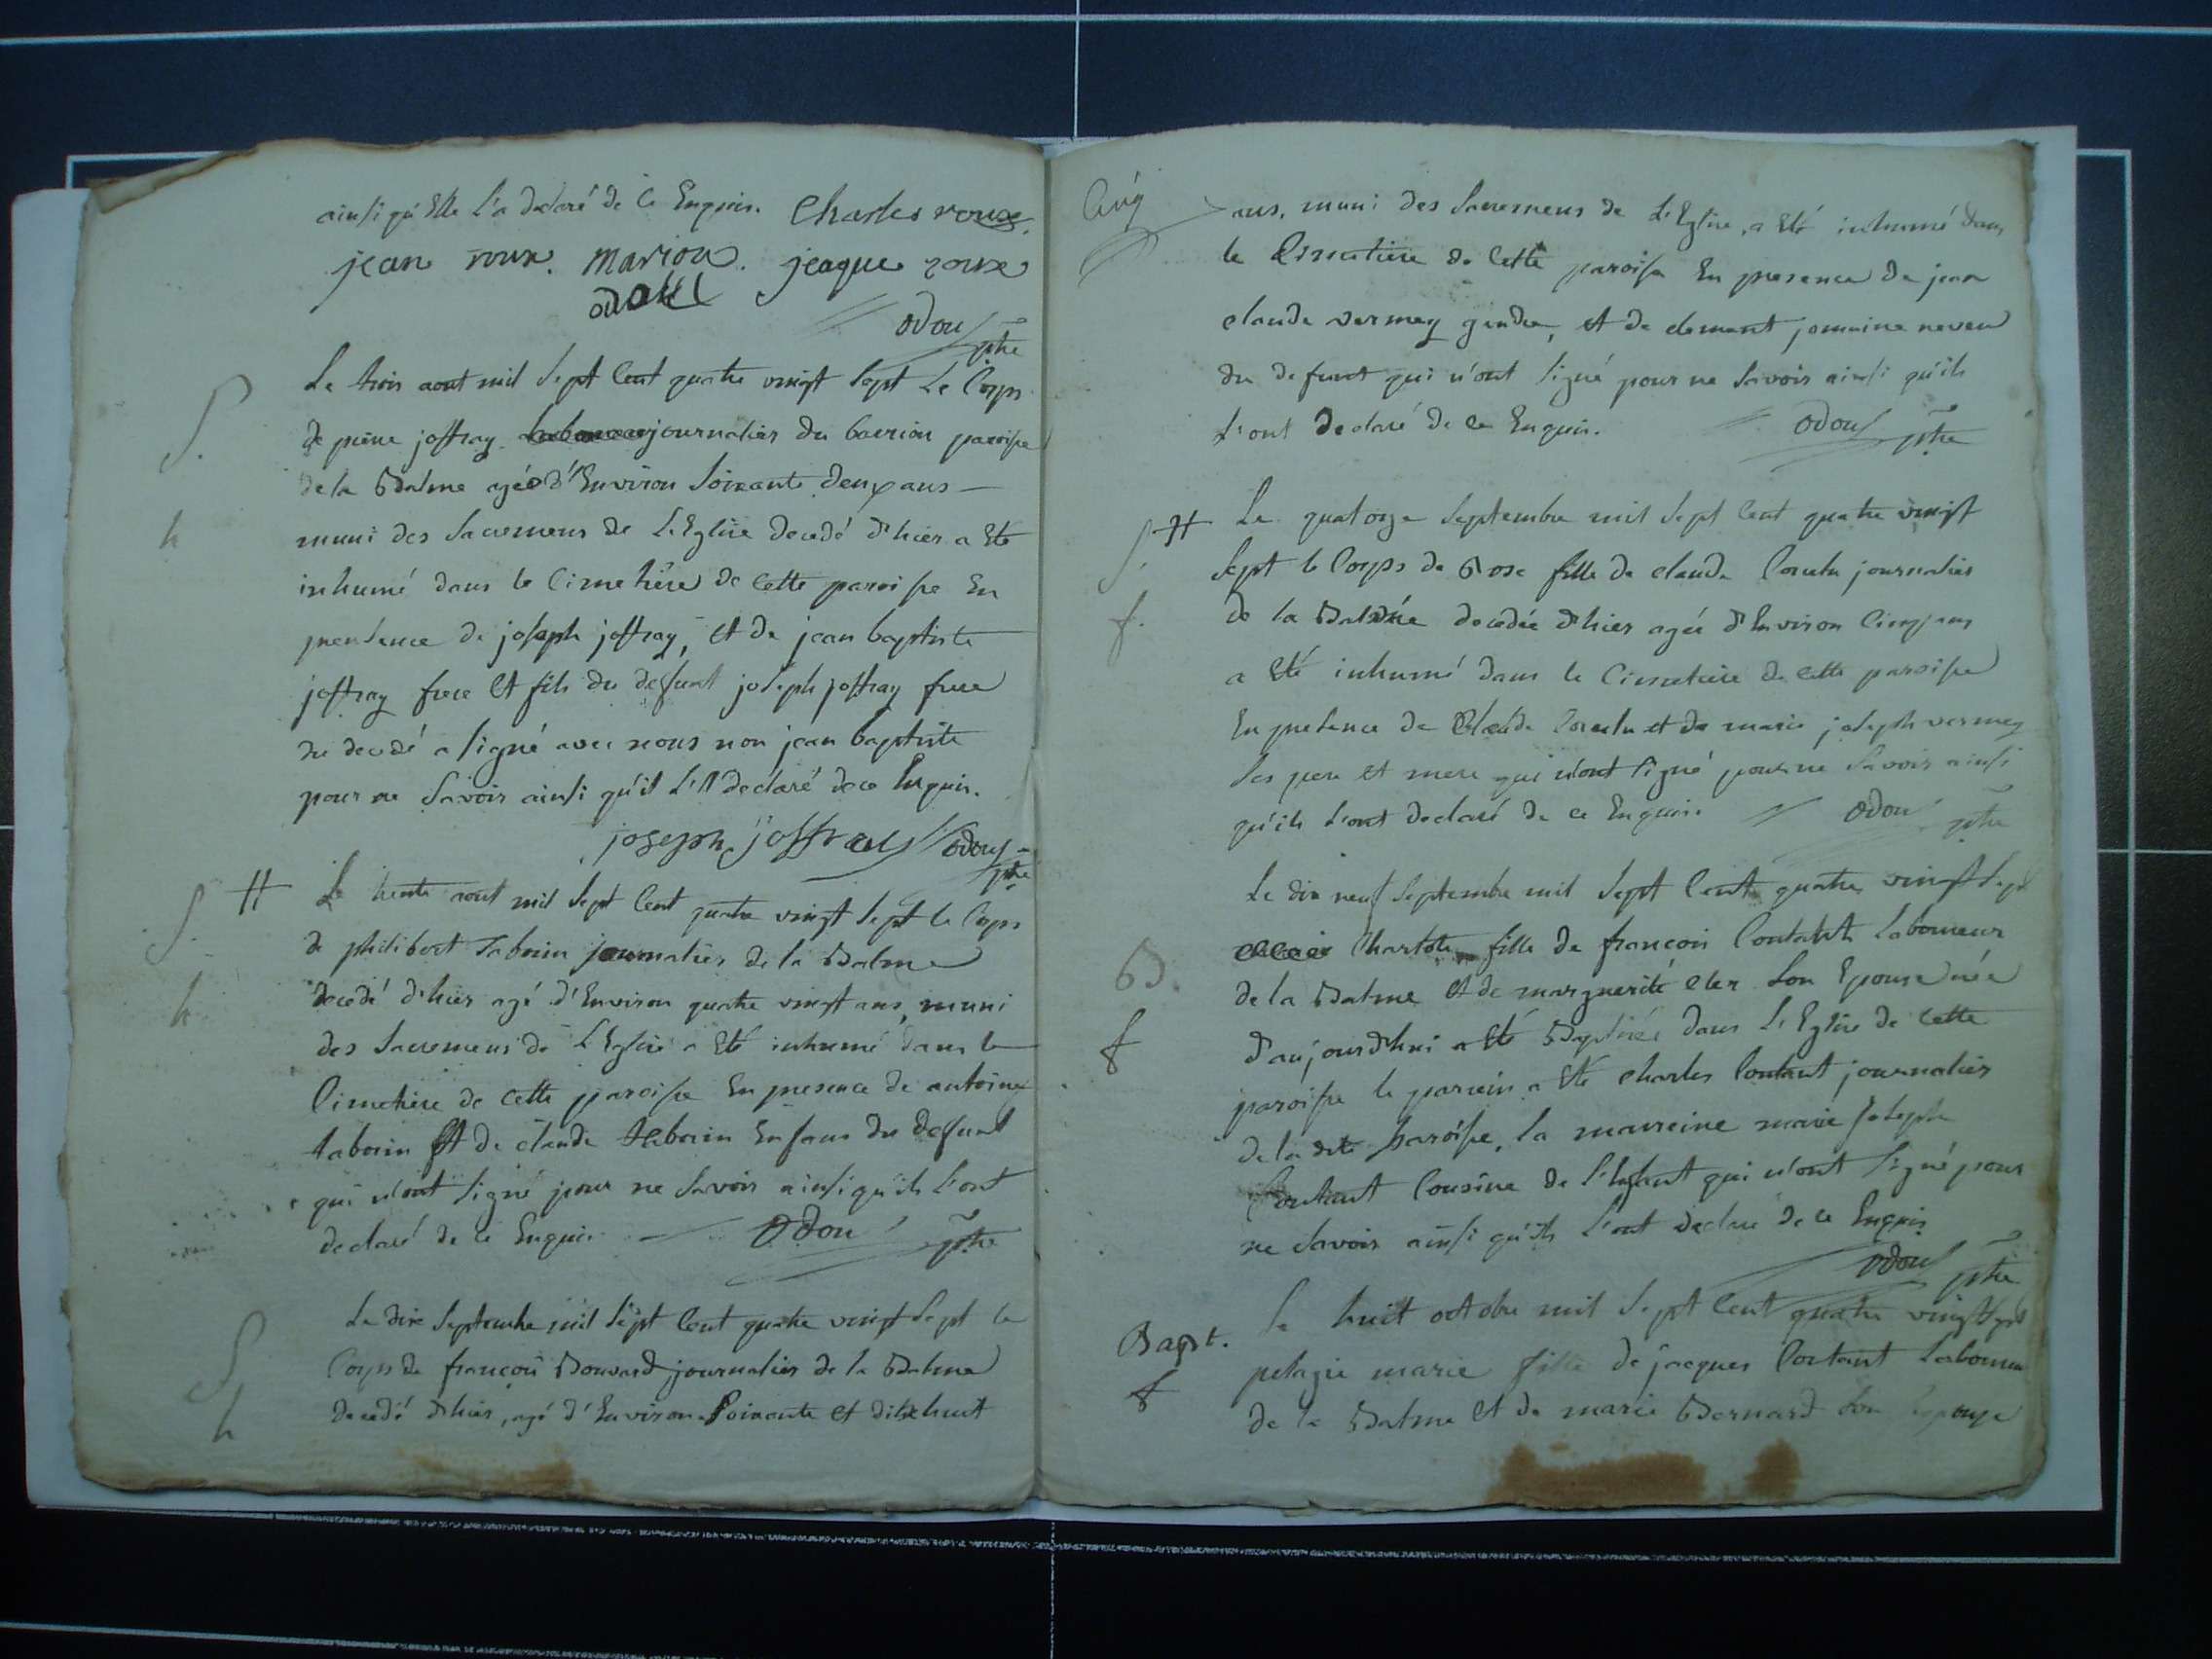 ainsi qu'Elle l'a declaré de ce Enquis. Charles roux.
jean roux. marion. jeaque roux
odou ptre
S.
h
Le trois aout mil Sept Cent quatre vingt Sept Le Corps
de pierre joffray journalier du paroisse
de la Balme agée d'Environ Soixante deux ans
muni des Sacremens de L'Eglise decedé d'hier a Eté
inhumé dans le Cimetière de Cette paroisse En
presence de joseph joffray, Et de jean baptiste
joffray frere Et fils du defunt joseph joffray frere
du decedé a signé avec nous non jean baptiste
pour ne Savoir ainsi qu'il L'a declaré de ce Enquis.
joseph joffray odou ptre
S. H
h
Le trente aout mil Sept Cent quatre vingt Sept le Corps
de philibert Taborin journalier de la Balme
decedé d'hier agé d'Environ quatre vingt ans, muni
des Sacremens de L'Eglise a Eté inhumé dans le
Cimetière de Cette paroisse En presence de antoine
taborin Et de claude taborin Enfans du defunt
qui n'ont signé pour ne Savoir ainsi qu'ils L'ont
declaré de ce Enquis. Odou ptre
S
h
Le dix Septembre mil Sept Cent quatre vingt Sept le
Corps de françois Bouvard journalier de la Balme
decedé d'hier, agé d'Environ Soixante Et dix huit
Cinq
ans, muni des Sacremens de L'Eglise, a Eté inhumé dans
le Cimetière de Cette paroisse En presence de jean
claude vermey gendre, Et de clement neveu
du defunt qui n'ont Signé pour ne Savoir ainsi qu'ils
L'ont declaré de ce Enquis. odou ptre
S. H
f.
Le quatorze Septembre mil Sept Cent quatre vingt
Sept le Corps de Rose fille de claude journalier
de la Balme decedée d'hier agée d'Environ Cinq ans
a Eté inhumé dans le Cimetière de Cette paroisse
En presence de Claude et de marie joseph vermey
Ses pere et mere qui n'ont Signé pour ne Savoir ainsi
qu'ils L'ont declaré de ce Enquis. odou ptre
B.
f
Le dix neuf Septembre mil Sept Cent quatre vingt Sept
Charlote fille de françois Contant Laboureur
de la Balme Et de marguerite Son Epouse née
d'aujourd'hui a Eté Baptisée dans L'Eglise de Cette
paroisse le parrein a Eté charles Contant journalier
de la dte paroisse, la marreine marie Joseph
Contant Cousine de L'Enfant qui n'ont Signé pour
ne Savoir ainsi qu'ils L'ont declaré de ce Enquis
odou ptre
Bapt.
f
Le huit octobre mil Sept Cent quatre vingt Sept
pelagie marie fille de jacques Contant Laboureur
de la Balme Et de marie Bernard Son Epouse